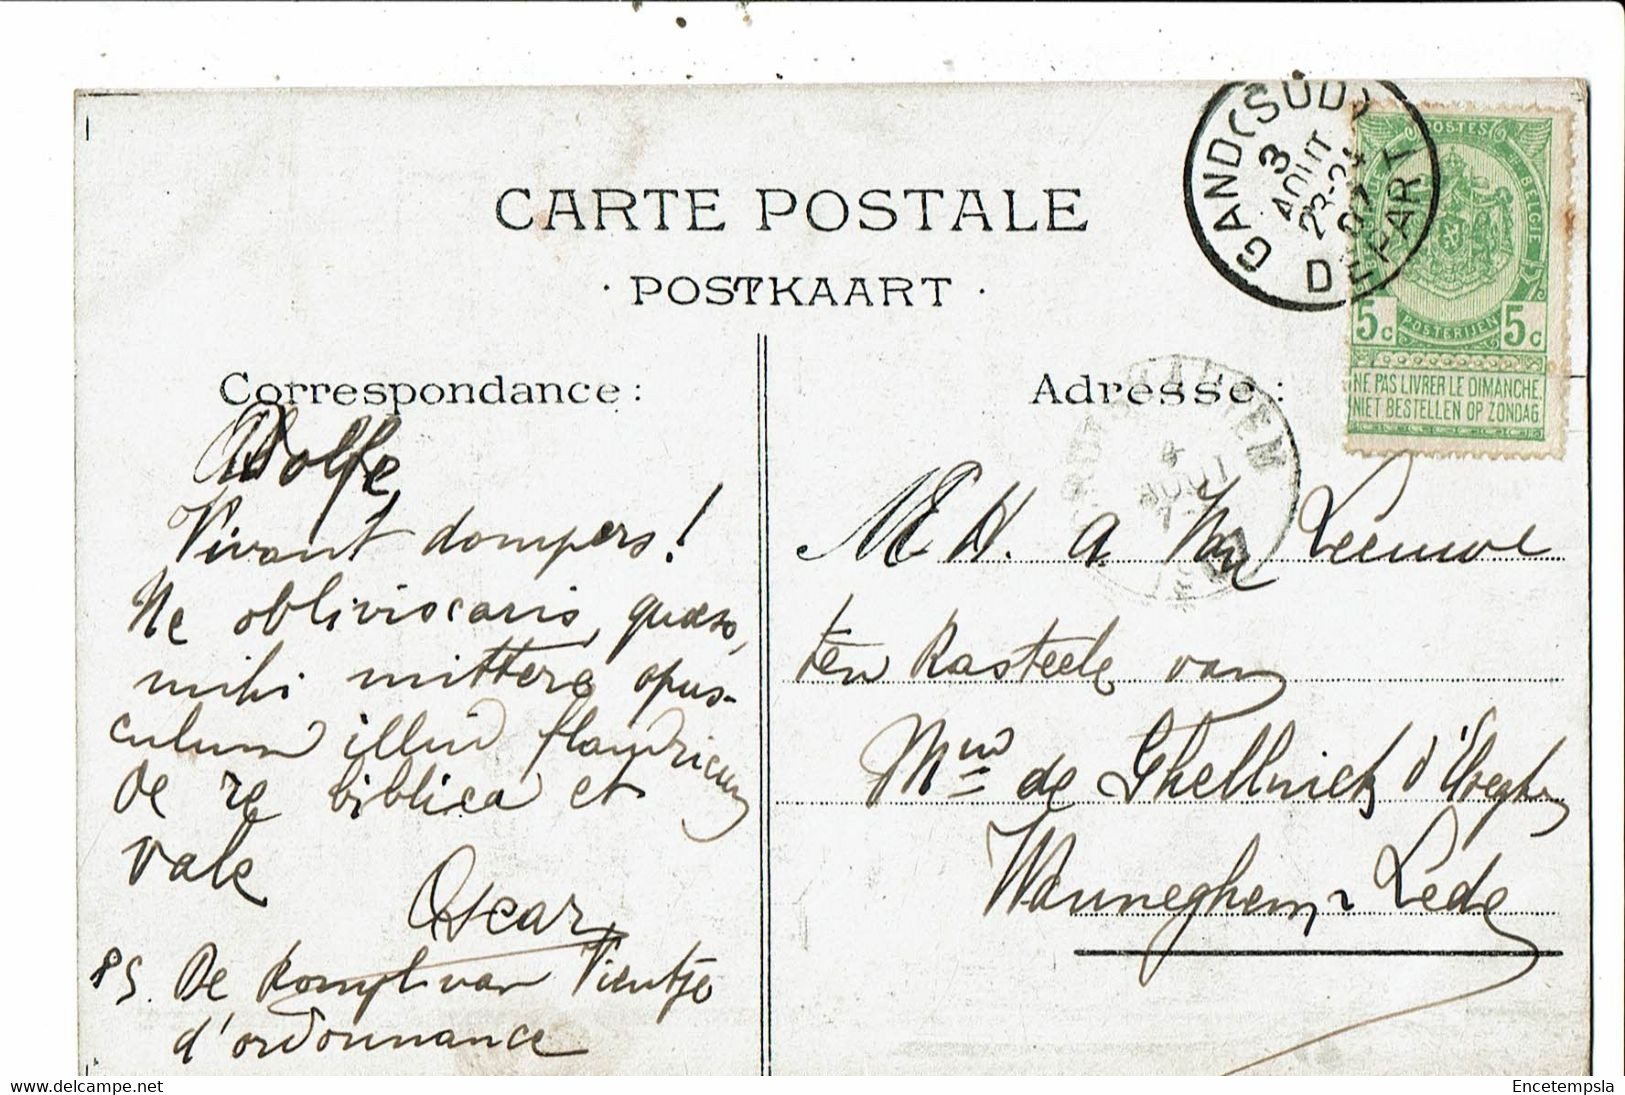 CARTE POSTALE
· POSTKAART ·
GAND (SUD)
3
AOUT
23-24
07
DEPART
POSTES
DE BELGIQUE
5c POSTERIJEN 5c
NE PAS LIVRER LE DIMANCHE
NIET BESTELLEN OP ZONDAG
Correspondance :
Adolfe,
Vivant dompers!
Ne obliviscaris, quæso,
mihi mittere opus-
culum illud flandricum
de re biblica et
vale
Oscar
PS. De kompl. van Tientje
d'ordonnance
Adresse :
4
AOUT
M E H. A. Van Leeuwe
ten Kasteele van
Mw de Ghellinck d'
Wanneghem-Lede
delcampe.net
Encetempsla